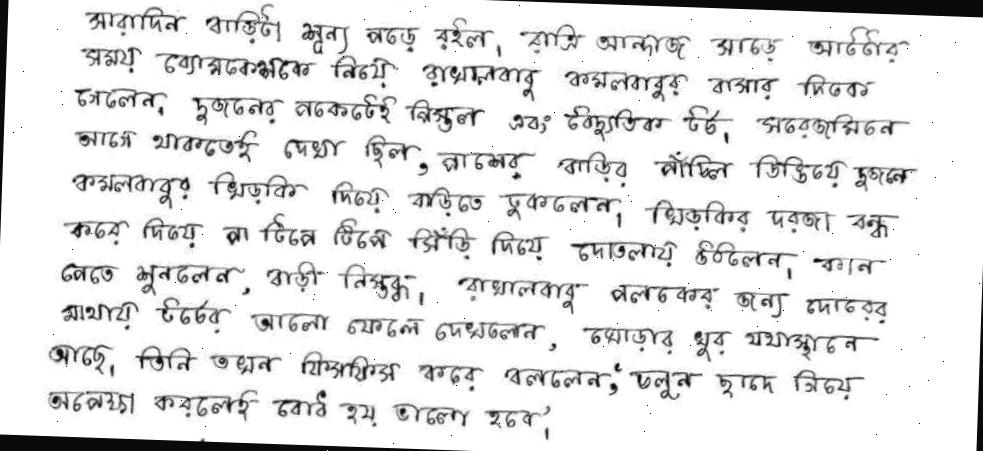 সারাদিন বাড়িটা শূন্য পড়ে রইল। রাত্রি আন্দাজ সাড়ে আটটার
সময় ব্যোমকেশকে নিয়ে রাখালবাবু কমলবাবুর বাসার দিকে
গেলেন। দুজনের পকেটেই পিস্তল এবং বৈদ্যুতিক টর্চ। সরেজমিনে
আগে থাকতেই দেখা ছিল, পাশের বাড়ির পাঁচিল ডিঙিয়ে দুজনে
কমলবাবুর খিড়কি দিয়ে বাড়িতে ঢুকলেন। খিড়কির দরজা বন্ধ
করে দিয়ে পা টিপে টিপে সিঁড়ি দিয়ে দোতলায় উঠলেন। কান
পেতে শুনলেন, বাড়ী নিস্তব্ধ। রাখালবাবু পলকের জন্যে দোরের
মাথায় টর্চের আলো ফেলে দেখলেন, ঘোড়ার খুর যথাস্থানে
আছে। তিনি তখন ফিসফিস করে বললেন, 'চলুন ছাদে গিয়ে
অপেক্ষা করলেই বোধ হয় ভালো হবে'।